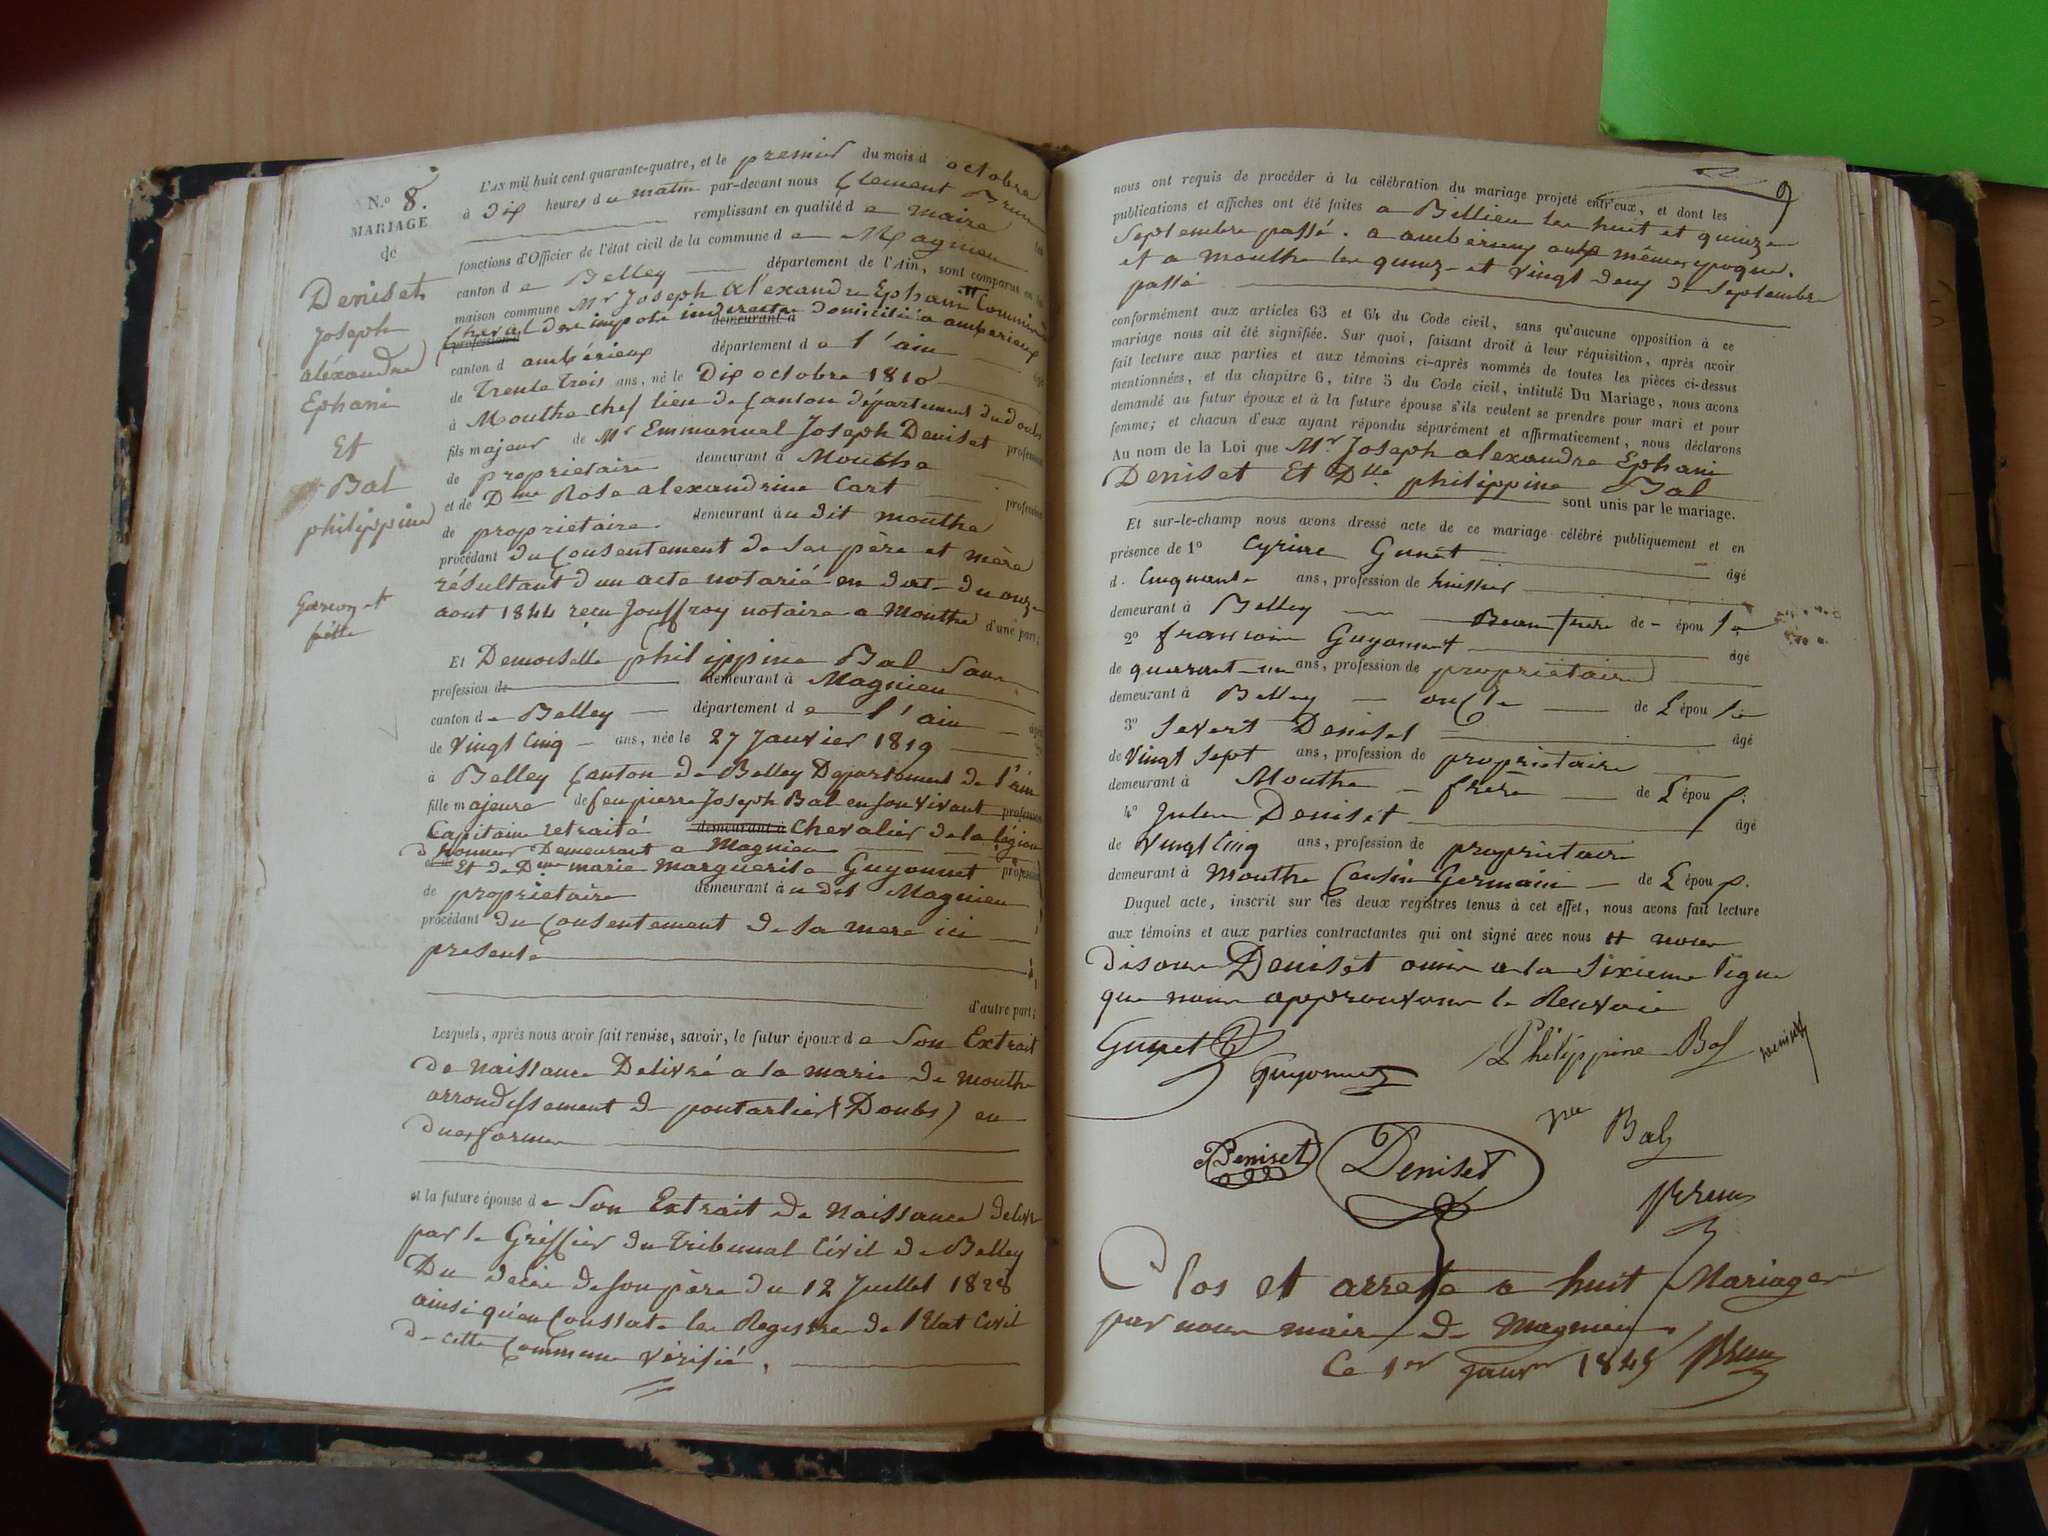 N.º 8.
MARIAGE
de
Deniset
Joseph
aléxandre
Ephani
Et
Bal
philippine
Garcon et
fille
L'AN mil huit cent quarante-quatre, et le premier du mois d octobre
à dix heures du matin par-devant nous Clement Brun
remplissant en qualité d e maire les
fonctions d'Officier de l'état civil de la commune d e Magnieu
canton d e Belley département de l'Ain, sont comparus en la
maison commune Mr Joseph Aléxandre Ephani # Commis à
Cheval des impots indirects demeurant à domicilié a amberieux
profession d
canton d ambérieux département d e l'ain âgé
de Trente trois ans, né le Dix octobre 1810
à Mouthe chef lieu de Canton département du doubs
fils majeur de Mr Emmanuel Joseph Deniset profession
de propriétaire demeurant à Mouthe
et de Dme Rose alexandrine Cart profession
de propriétaire demeurant à u dit mouthe
procédant du Consentement de ses père et mère
résultant d'un acte notarié en date du onze
aout 1844 reçu Jouffroy notaire a Mouthe d'une part;
Et Demoiselle philippine Bal Sans
profession de demeurant à Magnieu
canton d e Belley département d e l'ain âgée
de Vingt Cinq ans, née le 27 Janvier 1819
à Belley Canton de Belley Département de l'ain
fille majeure de feu pierre Joseph Bal en son vivant profession
Capitaine retraité demeurant à Chevalier de la légion
d'honneur Demeurant a Magnieu
Et de Dme marie Marguerite Guyonnet profession
de propriétaire demeurant à u dit Magnieu
procédant du Consentement de sa mere ici
presente
d'autre part;
Lesquels, après nous avoir fait remise, savoir, le futur époux d e Son Extrait
de Naissance Delivré a la mairie de mouthe
arrondissement de pontarlier (Doubs) en
dues formes
et la future épouse d e Son Extrait de Naissance delivré
par le Greffier du Tribunal Civil de Belley
Du décès de son père du 12 Juillet 1828
ainsi qu'en Constate les Registres de l'Etat Civil
de cette Commune vérifié,
9
nous ont requis de procéder à la célébration du mariage projeté entr'eux, et dont les
publications et affiches ont été faites a Billieu les huit et quinze
Septembre passé. a amberieux aux mêmes epoques.
et a mouthe les quinze et vingt deux de Septembre
passé
conformément aux articles 63 et 64 du Code civil, sans qu'aucune opposition à ce
mariage nous ait été signifiée. Sur quoi, faisant droit à leur réquisition, après avoir
fait lecture aux parties et aux témoins ci-après nommés de toutes les pièces ci-dessus
mentionnées, et du chapitre 6, titre 5 du Code civil, intitulé Du Mariage, nous avons
demandé au futur époux et à la future épouse s'ils veulent se prendre pour mari et pour
femme; et chacun d'eux ayant répondu séparément et affirmativement, nous déclarons
Au nom de la Loi que Mr. Joseph alexandre Ephani
Deniset Et Dlle philippine Bal
sont unis par le mariage.
Et sur-le-champ nous avons dressé acte de ce mariage célébré publiquement et en
présence de 1º Cyrice Gunet âgé
d. Cinquante ans, profession de huissier
demeurant à Belley Beau frere de - épou se
2º francois Guyonnet âgé
de quarante un ans, profession de propriétaire
demeurant à Belley oncle de L'épou se
3º Severt Deniset âgé
de Vingt Sept ans, profession de propriétaire
demeurant à Mouthe frère de L'épou x
4º Jules Deniset âgé
de Vingt Cinq ans, profession de propriétaire
demeurant à Mouthe Cousin Germain de L'épou x.
Duquel acte, inscrit sur les deux registres tenus à cet effet, nous avons fait lecture
aux témoins et aux parties contractantes qui ont signé avec nous # nous
disons Deniset omis a la Sixieme ligne
que nous approuvons le Renvoi
Gunet
Guyonnet
Philippine Bal
Deniset
Bal
Deniset
Deniset
Brun
Clos et arreté a huit Mariages
par nous maire de Magnieu
Ce 1er Janvr 1845 Brun